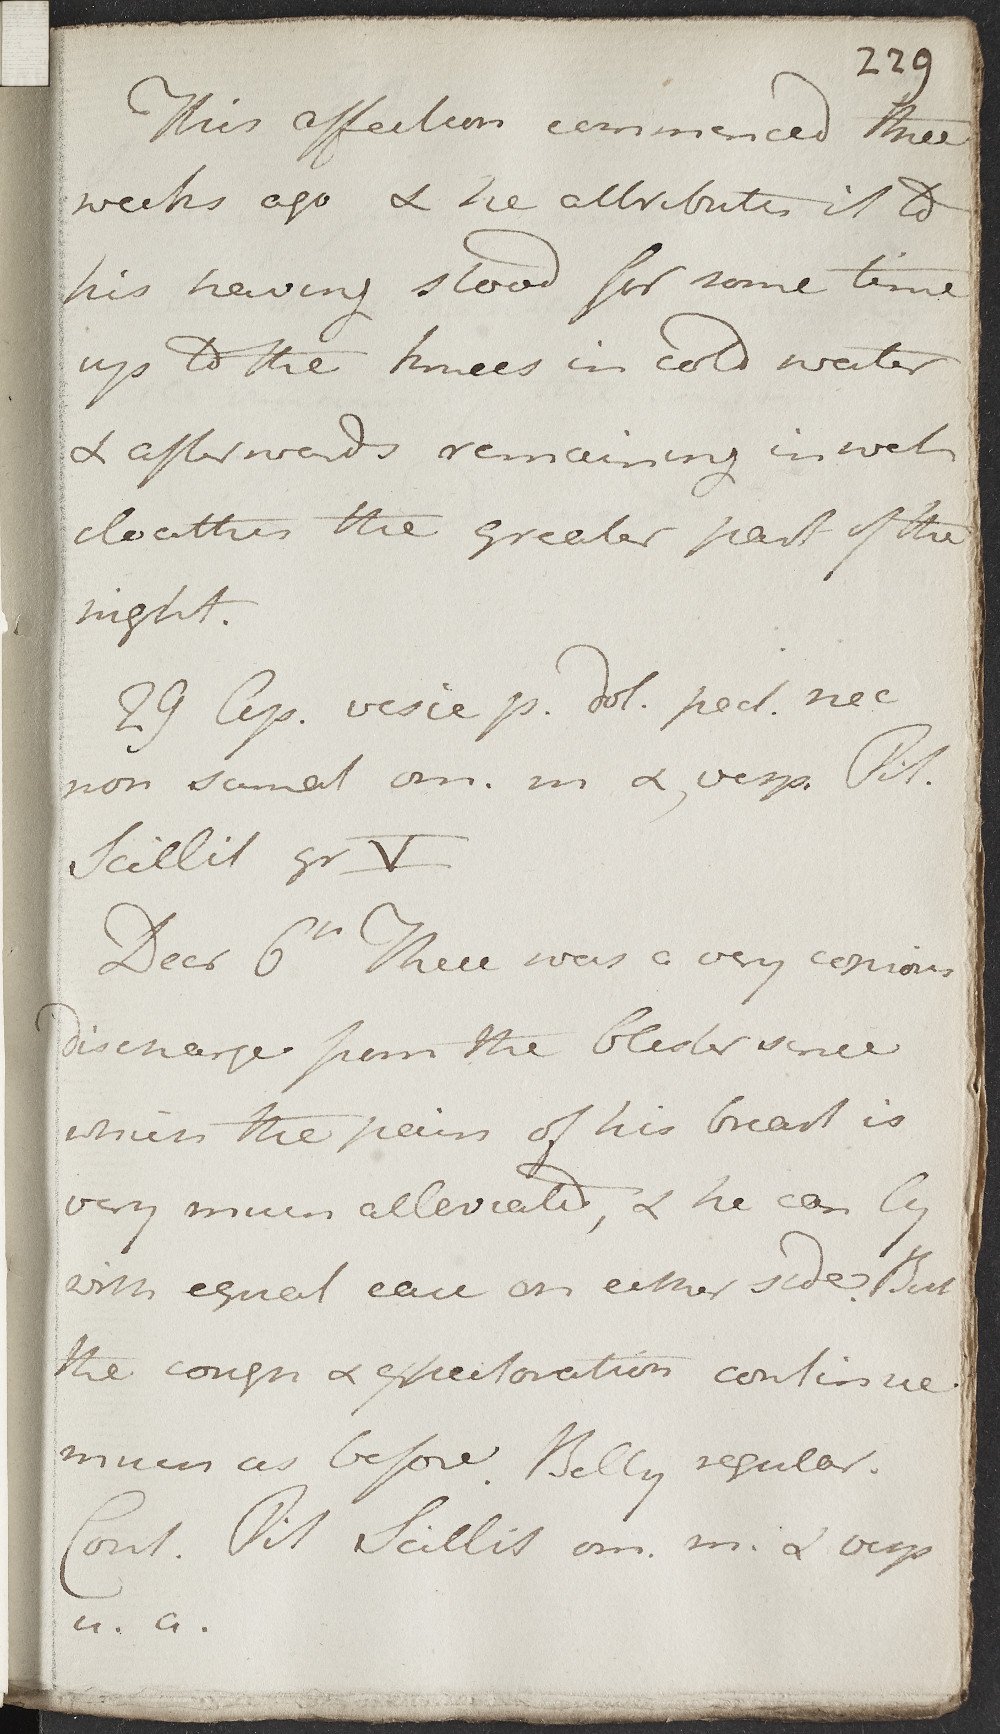 229
This affection commenced three
weeks ago & he attributes it to
his having stood for some time
up to the knees in cold water
& afterwards remaining in wet
cloathes the greater part of the
night.
29 Cap. vesic p. dol. pect. nec
non sumat om. m & vesp. Pil.
Scillit gr V
Decr 6th There was a very copious
discharge from the blister since
which the pain of his breast is
very much alleviated, & he can ly
with equal ease on either side. But
the cough & expectoration continue
much as before. Belly regular.
Cont. Pil Scillit om. m. & vesp
u. a.